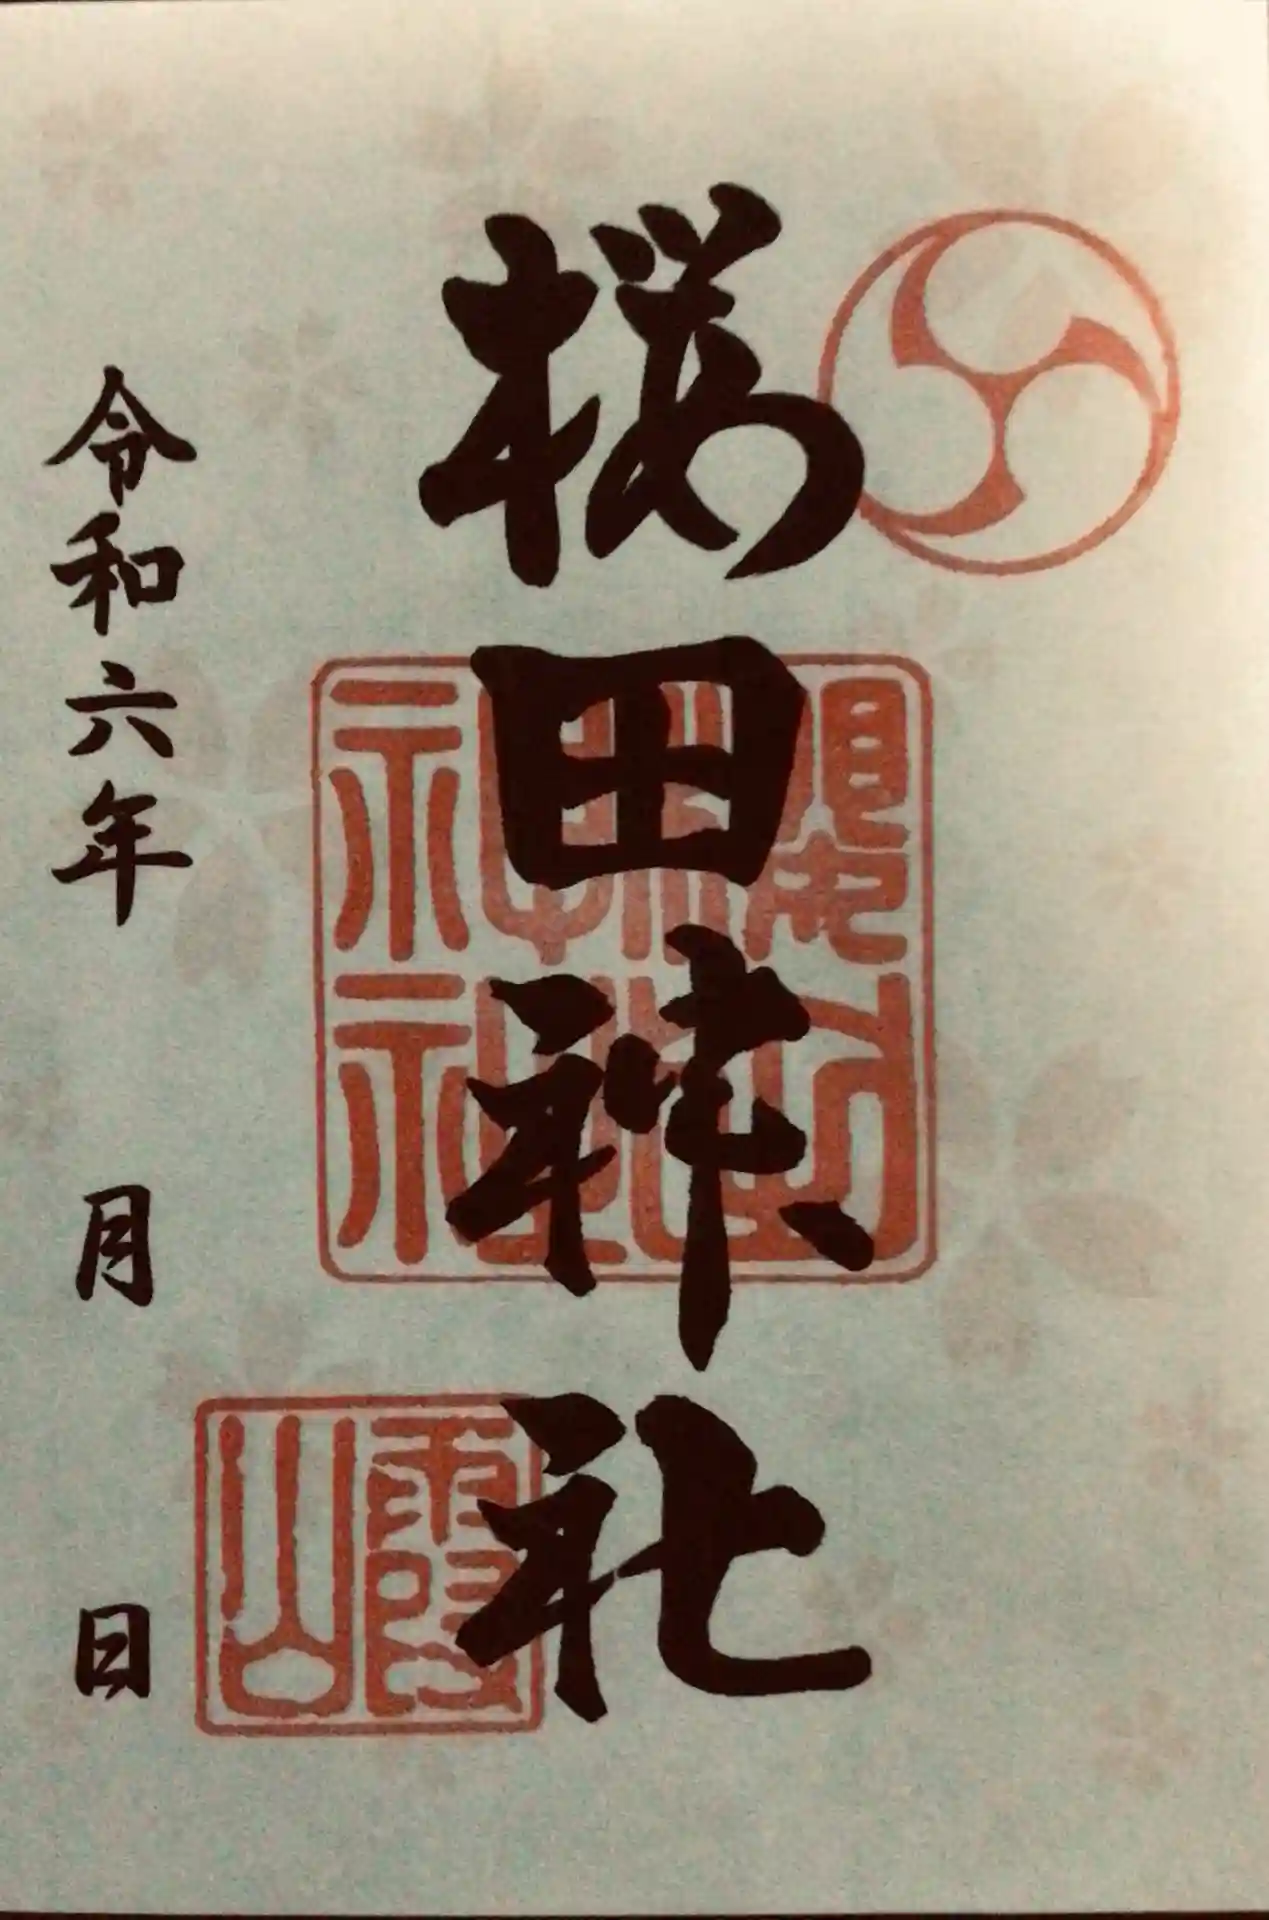 桜田神社
神社
霞山
令和六年
月
日